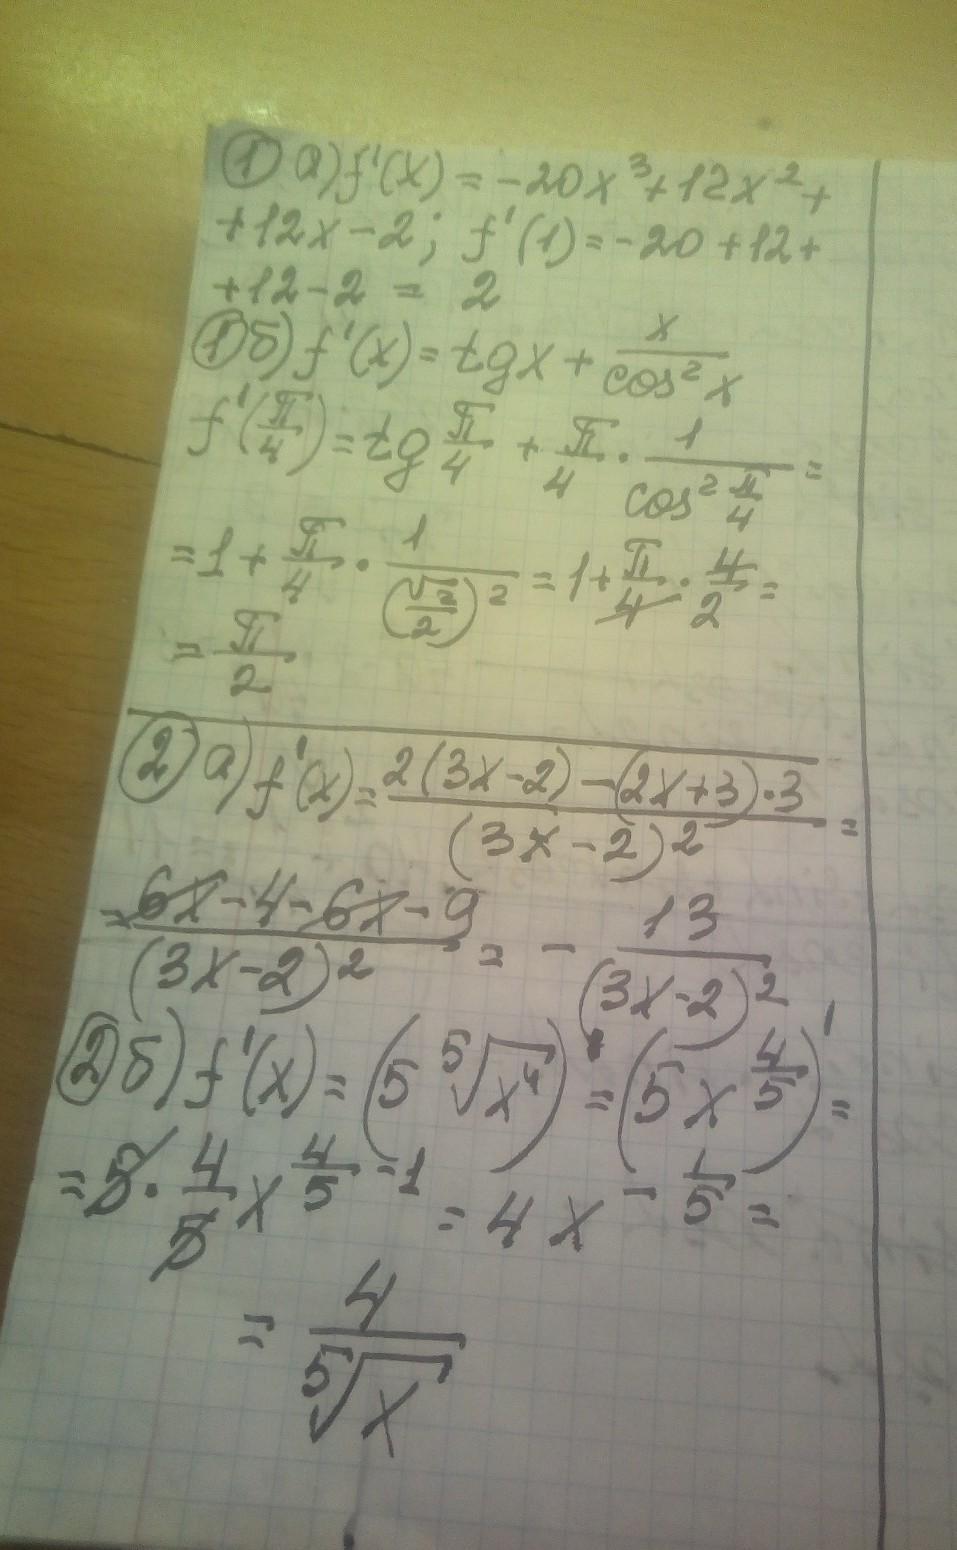 ① а) f'(x) = -20x³ + 12x² +
+12x - 2; f'(1) = -20 + 12 +
+12 - 2 = 2
① б) f'(x) = tgx + x/cos²x
f'(π/4) = tg π/4 + π/4 · 1/cos² π/4 =
= 1 + π/4 · 1/(√2/2)² = 1 + π/4 · 4/2 =
= π/2
② а) f'(x) = 2(3x-2) - (2x+3)·3/(3x-2)² =
= 6x - 4 - 6x - 9/(3x-2)² = - 13/(3x-2)²
② б) f'(x) = (5 ⁵√x⁴)' = (5x^4/5)' =
= 5 · 4/5 x^4/5 - 1 = 4x^-1/5 =
= 4/⁵√x